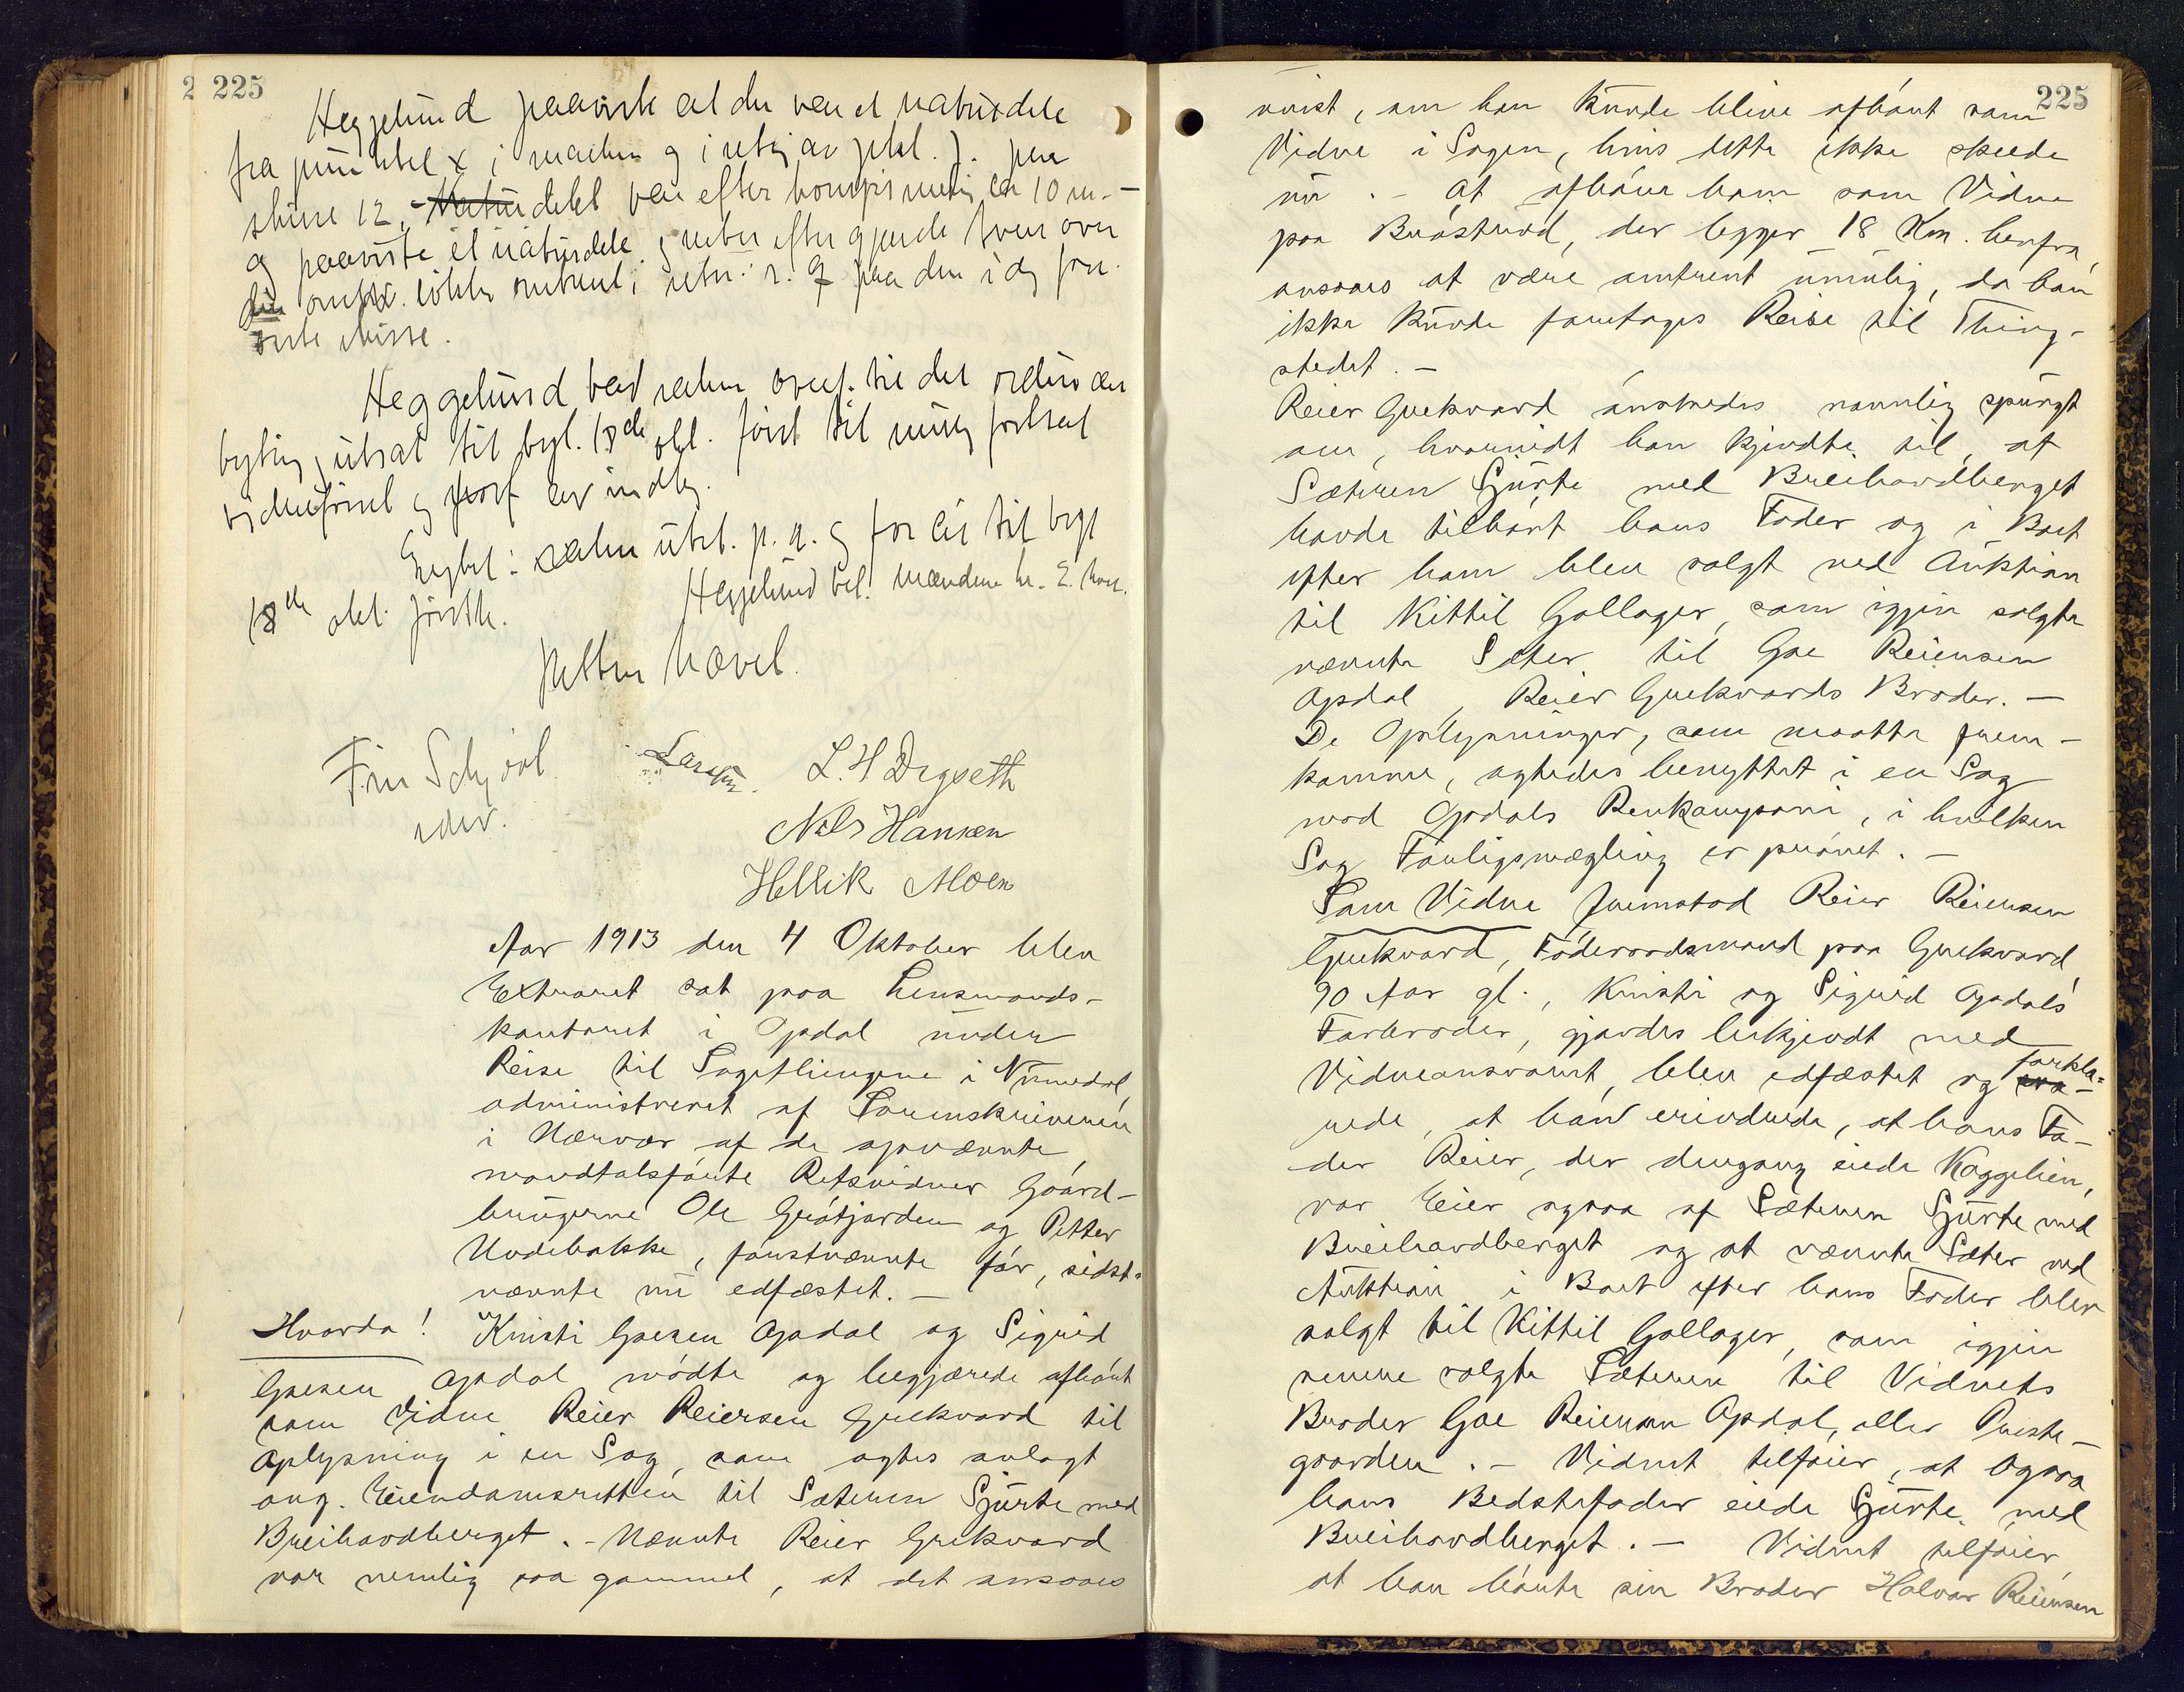 225
Heggelund paaviste at der var et naturdele
fra punktet x i marken og i retning av pkt. J. paa
skisse 12. Naturdelet var efter ca 10 m.
og paaviste et naturdele
paa den i dag frem-
viste skisse.
Heggelund bad saken overf. til det ordinære
bygting, utsat til bygt. 18de okt. først til mulig fortsat
vidneførsel og
saken utsat p. a. og for til bygt
18de okt. førstk. Heggelund bet. mændene
Retten hævet.
Fin Schjøol
edsv.
L. H Drgseth
Nils Hansen
Hellik Moen
Aar 1913 den 4 Oktober blev
Extraret sat paa Lensmands-
kontoret i Opdal under
Reise til Sagethingene i Numedal,
administreret af Sorenskriveren
i Nærvær af de opnævnte
mandtalsførte Retsvidner Gaard-
brugerne Ole Grøtjorden og Petter
Undebakke, førstnævnte før, sidst-
nævnte nu edfæstet. —
Hvorda! Kristi Goesen Opdal og Sigrid
Goesen Opdal mødte og begjærede afhørt
som Vidne Reier Reiersen Grekvard til
Oplysning i en Sag, som agtes anlagt
ang. Eiendomsretten til Sæteren Sjurte med
Breihovdberget. - Nævnte Reier Grekvard
var nemlig saa gammel, at det ansaaes
225
uvist, om han kunde blive afhørt som
Vidne i Sagen, hvis dette ikke skeede
nu. - At afhøre ham som Vidne
paa Brøstrud, der ligger 18 Km. herfra,
ansaaes at være omtrent umulig, da han
ikke kunde foretages Reise til Thing-
stedet. —
Reier Grekvard ønskedes navnlig spurgt
om, hvorvidt han kjendte til, at
Sæteren Sjurte med Breihovdberget
havde tilhørt hans Fader og i Boet
efter ham blev solgt ved Auktion
til Kittil Gollager, som igjen solgte
nævnte Sæter til Goe Reiersen
Opdal, Reier Grekvards Broder. —
De Oplysninger, som maatte frem-
komme, agtedes benyttet i en Sag
mod Opdals Renkompani, i hvilken
Sag Forligsmægling er prøvet. —
Som Vidne fremstod Reier Reiersen
Grekvard, Føderaadsmand paa Grekvard
90 Aar gl., Kristi og Sigrid Opdals
Farbroder, gjordes bekjendt med
Vidneansvaret, blev edfæstet og forkla-
rede, at han erindrede, at hans Fa-
der Reier, der dengang eiede Kaggelien,
var Eier ogsaa af Sæteren Sjurte med
Breihovdberget og at nævnte Sæter ved
Auktion i Boet efter hans Fader blev
solgt til Kittil Gollager, som igjen
senere solgte Sæteren til Vidnets
Broder Goe Reiersen Opdal, eller Preste-
gaarden. - Vidnet tilføier, at ogsaa
hans Bedstefader eiede Sjurte med
Breihovdberget. — Vidnet tilføier
at han hørte sin Broder Halvor Reiersen